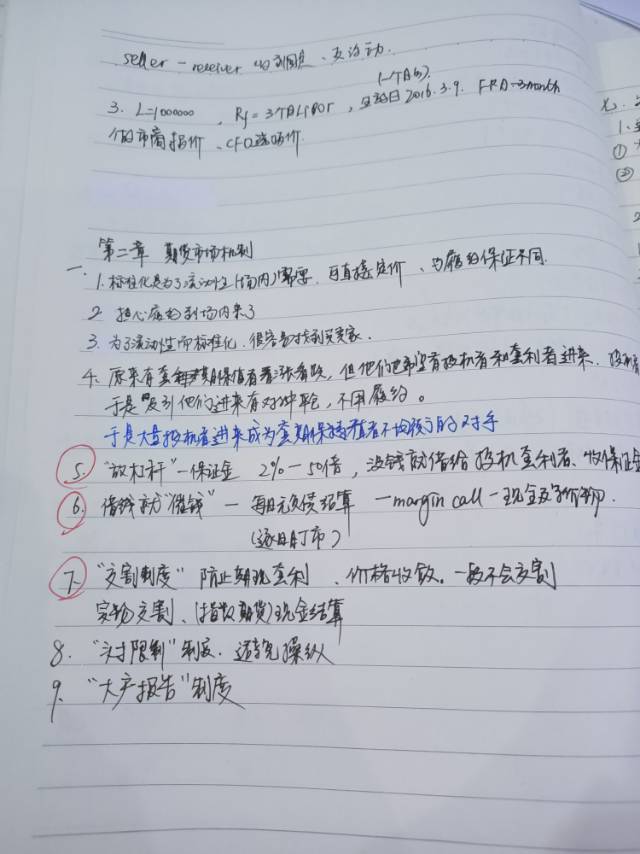 seller - receiver 收到固定、支浮动.
(一个Ab).
3. L=1000000 , Rf = 3个月Libor , 生效日 2016.3.9. FRA-3month
个的市商报价、CFO选哪价.
第二章 期货市场机制
一、
1. 标准化是为了流动性(场内)需要. 且直接定价、与履约保证不同.
2 担心庞的到场内来了
3. 为了流动性而标准化. 很容易找到买卖家.
4. 原来有套期保值者看涨看跌, 但他们也希望有投机者和套利者进来.
于是吸引他们进来有对冲平仓, 不用履约。
于是大量投机者进来成为套期保值者不均衡方的对手
5. "放杠杆" — 保证金 2% — 50倍, 没钱就借给投机套利者、收保证金
6. 借钱就"催钱" — 每日无负债结算 — margin call — 现金
(逐日盯市)
7. "交割制度" 防止期现套利、价格收敛. 一般不会交割
实物交割、(指数期货)现金结算
8. "头寸限制"制度. 避免操纵
9. "大户报告"制度
1.
①
②
2